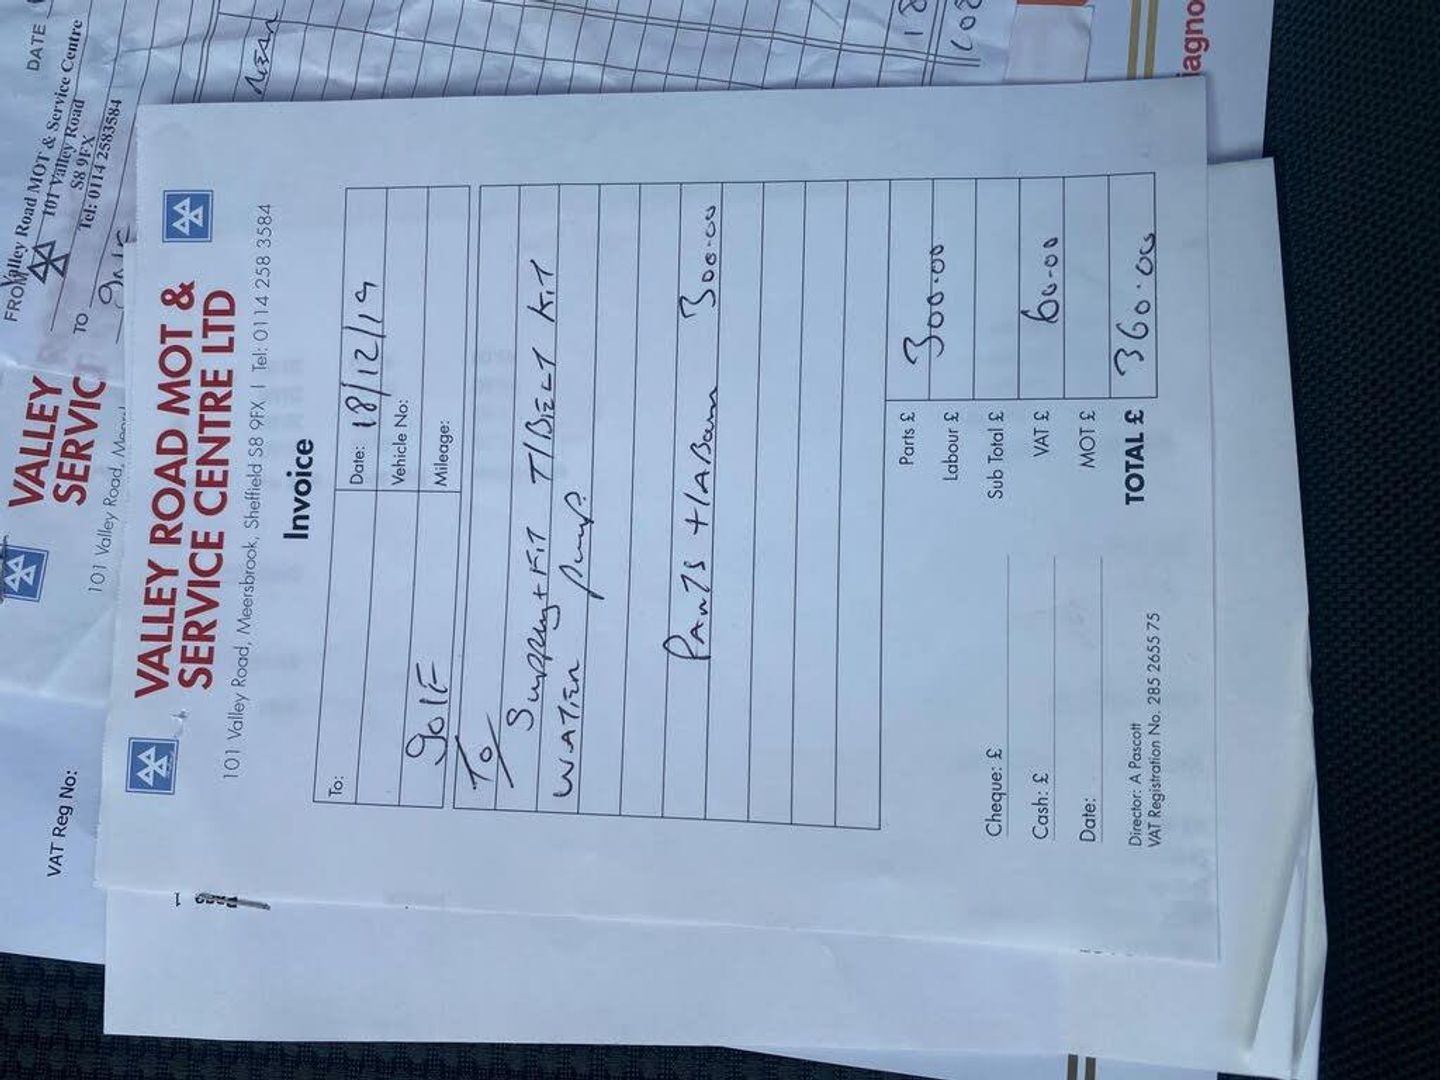 VALLEY ROAD MOT &
SERVICE CENTRE LTD
101 Valley Road, Meersbrook, Sheffield S8 9FX | Tel: 0114 258 3584
Invoice
To:
Date: 18/12/19
Vehicle No:
GOLF
Mileage:
To/
Supply + Fit T/BELT KIT
WATER Pump.
PARTS + LABOUR 300.00
Parts £
Labour £ 300.00
Sub Total £
VAT £ 60.00
MOT £
TOTAL £ 360.00
Cheque: £
Cash: £
Date:
Director: A Pascott
VAT Registration No. 285 2655 75
VALLEY
SERVIC
101 Valley Road,
VAT Reg No:
FROM Valley Road MOT & Service Centre
101 Valley Road
S8 9FX
Tel: 0114 2583584
DATE
TO
iagno